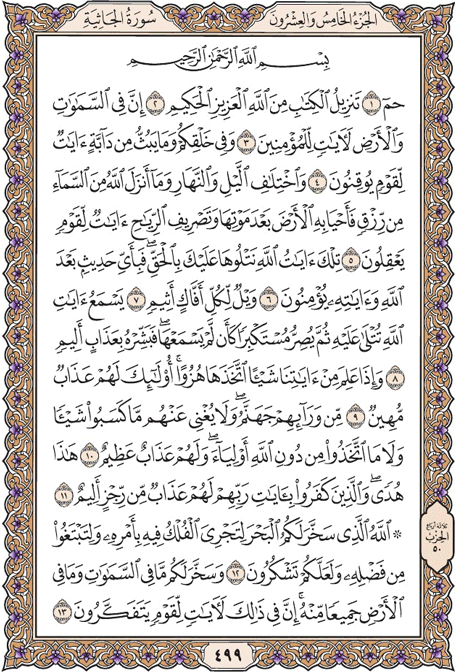 الجزء الخامس والعشرون
سورة الجاثية
بِسْمِ اللَّهِ الرَّحْمَٰنِ الرَّحِيمِ
حمٓ ١ تَنزِيلُ الْكِتَابِ مِنَ اللَّهِ الْعَزِيزِ الْحَكِيمِ ٢ إِنَّ فِي السَّمَاوَاتِ
وَالْأَرْضِ لَآيَاتٍ لِّلْمُؤْمِنِينَ ٣ وَفِي خَلْقِكُمْ وَمَا يَبُثُّ مِن دَابَّةٍ ءَايَاتٌ
لِّقَوْمٍ يُوقِنُونَ ٤ وَاخْتِلَافِ اللَّيْلِ وَالنَّهَارِ وَمَا أَنزَلَ اللَّهُ مِنَ السَّمَاءِ
مِن رِّزْقٍ فَأَحْيَا بِهِ الْأَرْضَ بَعْدَ مَوْتِهَا وَتَصْرِيفِ الرِّيَاحِ ءَايَاتٌ لِّقَوْمٍ
يَعْقِلُونَ ٥ تِلْكَ ءَايَاتُ اللَّهِ نَتْلُوهَا عَلَيْكَ بِالْحَقِّ ۖ فَبِأَيِّ حَدِيثٍ بَعْدَ
اللَّهِ وَءَايَاتِهِ يُؤْمِنُونَ ٦ وَيْلٌ لِّكُلِّ أَفَّاكٍ أَثِيمٍ ٧ يَسْمَعُ ءَايَاتِ
اللَّهِ تُتْلَىٰ عَلَيْهِ ثُمَّ يُصِرُّ مُسْتَكْبِرًا كَأَن لَّمْ يَسْمَعْهَا ۖ فَبَشِّرْهُ بِعَذَابٍ أَلِيمٍ
٨ وَإِذَا عَلِمَ مِنْ ءَايَاتِنَا شَيْئًا اتَّخَذَهَا هُزُوًا ۚ أُولَٰئِكَ لَهُمْ عَذَابٌ
مُّهِينٌ ٩ مِّن وَرَائِهِمْ جَهَنَّمُ ۖ وَلَا يُغْنِي عَنْهُم مَّا كَسَبُوا شَيْئًا
وَلَا مَا اتَّخَذُوا مِن دُونِ اللَّهِ أَوْلِيَاءَ ۖ وَلَهُمْ عَذَابٌ عَظِيمٌ ١٠ هَٰذَا
هُدًى ۖ وَالَّذِينَ كَفَرُوا بِآيَاتِ رَبِّهِمْ لَهُمْ عَذَابٌ مِّن رِّجْزٍ أَلِيمٌ ١١
۞ اللَّهُ الَّذِي سَخَّرَ لَكُمُ الْبَحْرَ لِتَجْرِيَ الْفُلْكُ فِيهِ بِأَمْرِهِ وَلِتَبْتَغُوا
مِن فَضْلِهِ وَلَعَلَّكُمْ تَشْكُرُونَ ١٢ وَسَخَّرَ لَكُم مَّا فِي السَّمَاوَاتِ وَمَا فِي
الْأَرْضِ جَمِيعًا مِّنْهُ ۚ إِنَّ فِي ذَٰلِكَ لَآيَاتٍ لِّقَوْمٍ يَتَفَكَّرُونَ ١٣
ثلاثة أرباع
الحزب
٥٠
٤٩٩